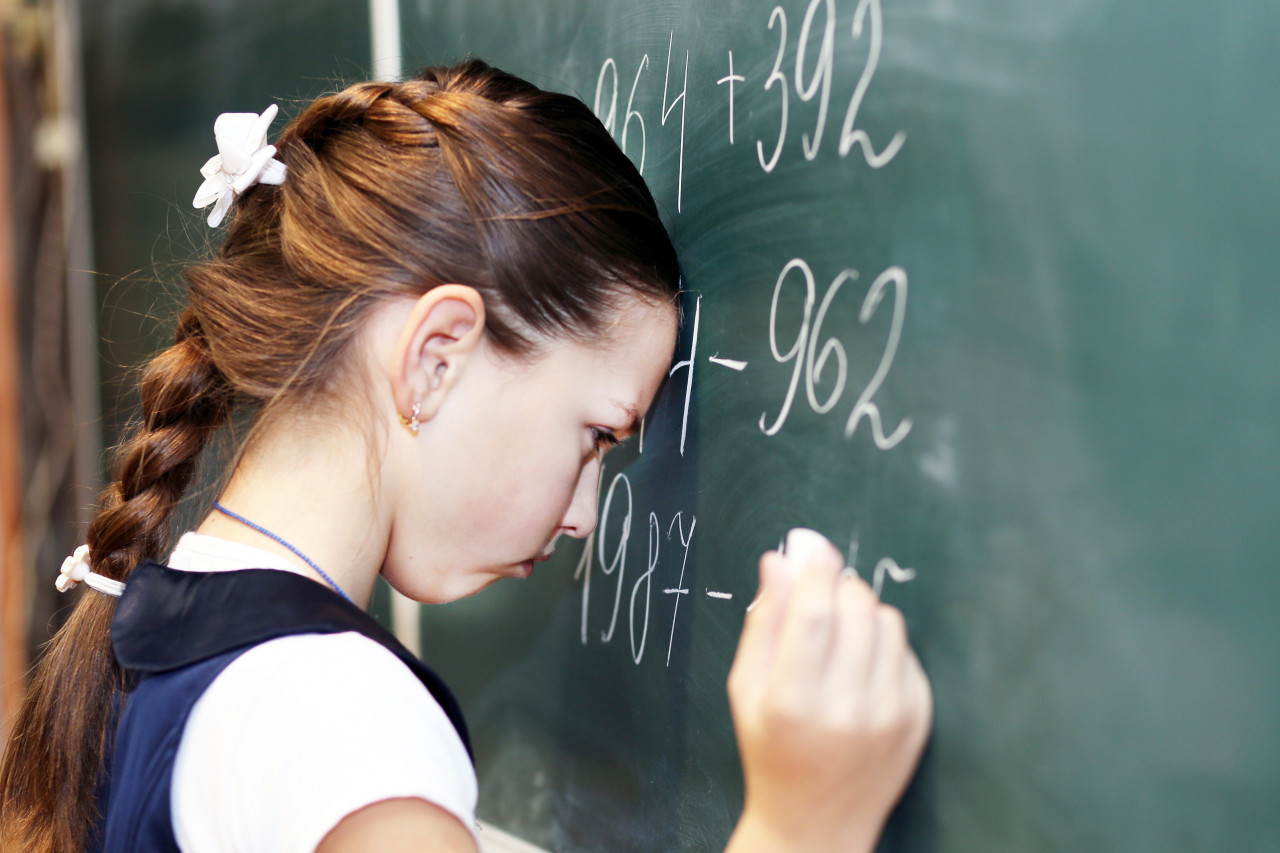 964 + 392
4 - 962
1987 -